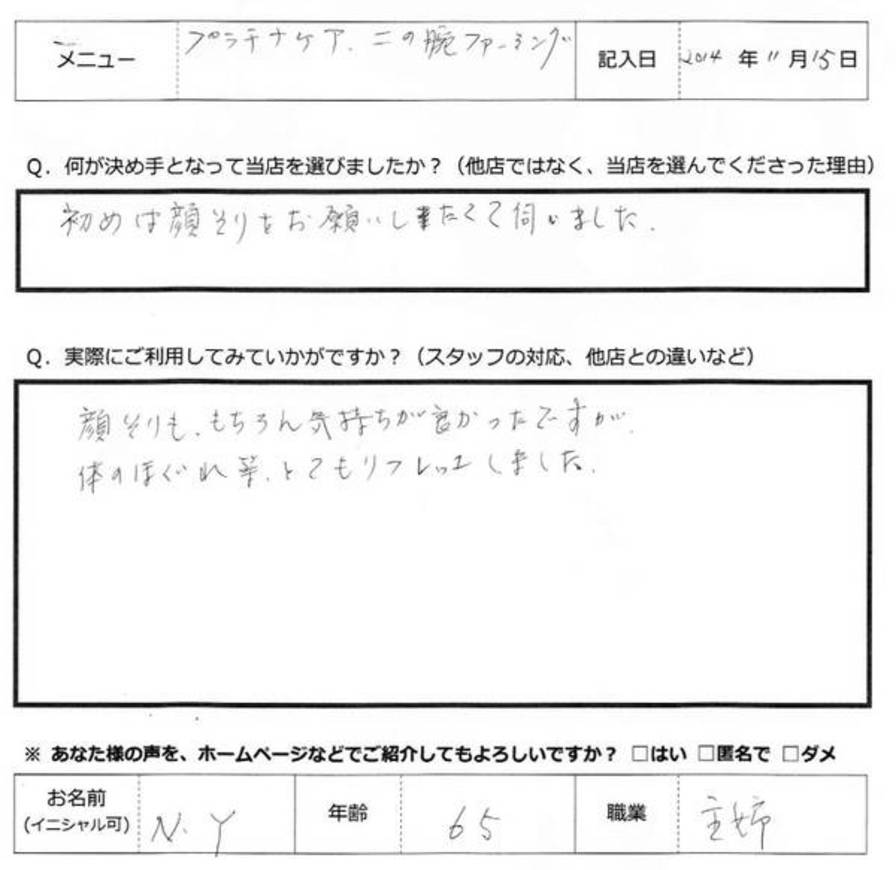 メニュー プラチナケア、二の腕ファーミング 記入日 2014 年 11 月 15 日
Q. 何が決め手となって当店を選びましたか？（他店ではなく、当店を選んでくださった理由）
初めは顔そりをお願いしたくて伺いました。
Q. 実際にご利用してみていかがですか？（スタッフの対応、他店との違いなど）
顔そりも、もちろん気持ちが良かったですが、
体のほぐれ等、とてもリフレッシュしました。
※ あなた様の声を、ホームページなどでご紹介してもよろしいですか？ □はい □匿名で □ダメ
お名前 N.Y 年齢 65 職業 主婦
(イニシャル可)